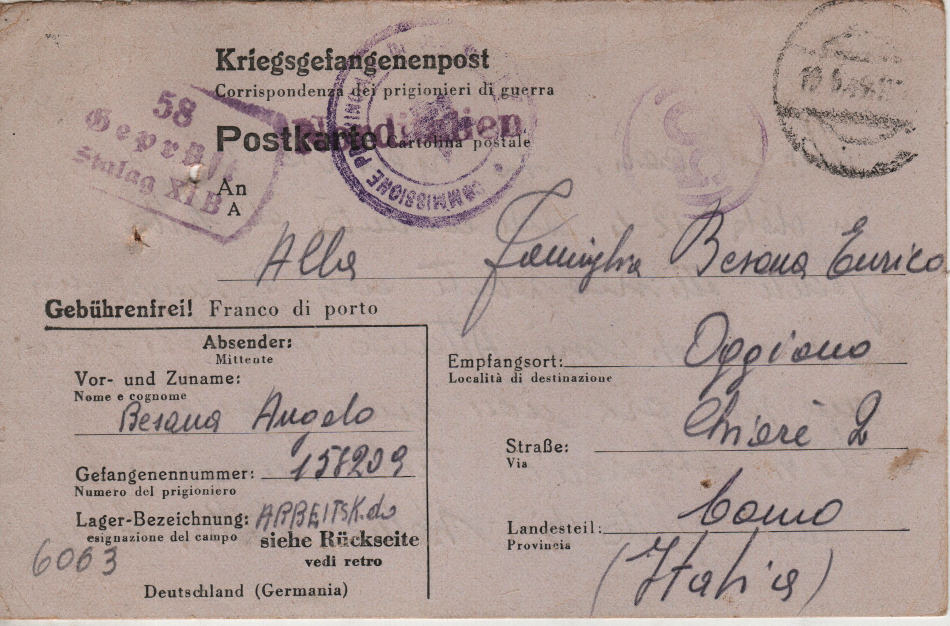 Kriegsgefangenenpost
Corrispondenza dei prigionieri di guerra
58
Geprüft
Stalag XIB
COMMISSIONE
Postkarte Cartolina postale
An
A
Alla Famiglia Besana Enrico
Gebührenfrei! Franco di porto
Absender:
Mittente
Vor- und Zuname:
Nome e cognome
Besana Angelo
Gefangenennummer: 158209
Numero del prigioniero
Lager-Bezeichnung: ARBEITSK.do
esignazione del campo
siehe Rückseite
vedi retro
6063
Deutschland (Germania)
Empfangsort: Oggiono
Località di destinazione
Straße: Chiari 2
Via
Landesteil: Como
Provincia
(Italia)